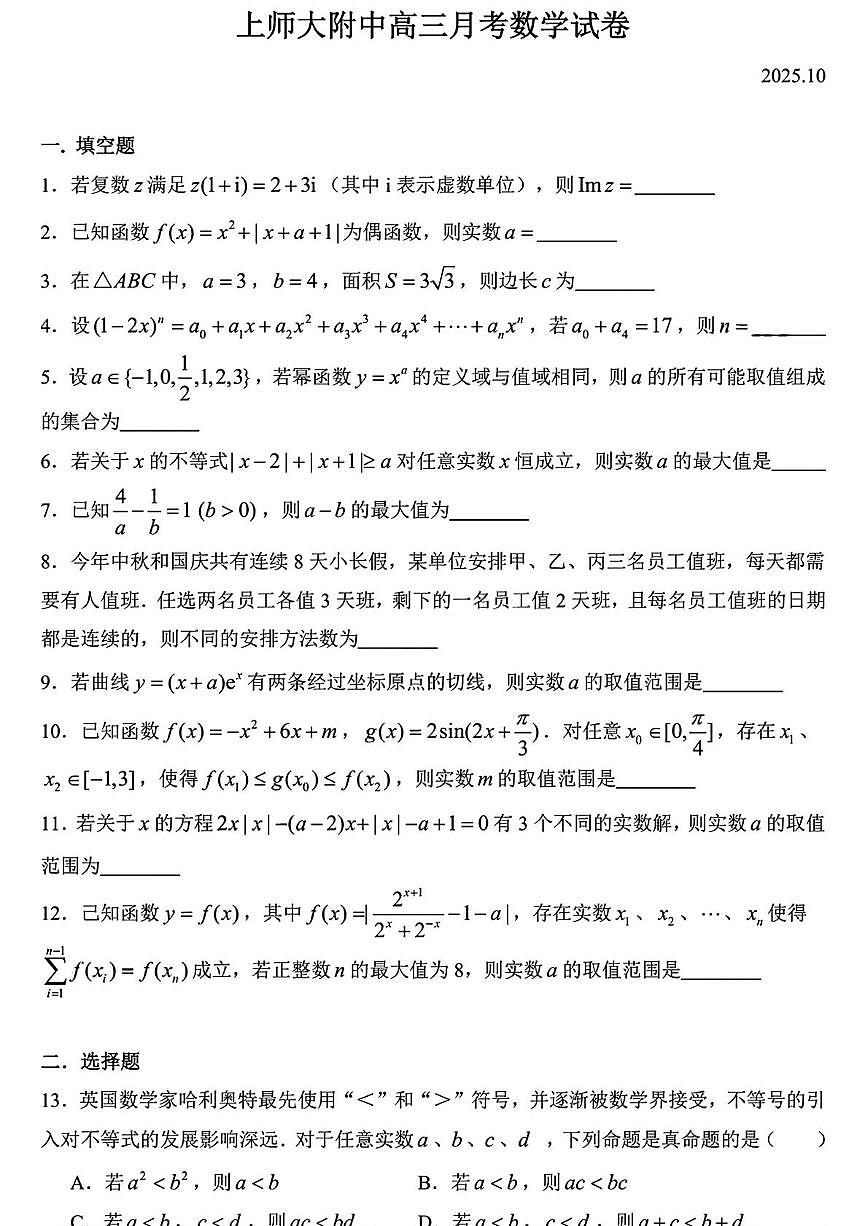 上师大附中高三月考数学试卷
2025.10
一. 填空题
1. 若复数 z 满足 z(1+i)=2+3i（其中 i 表示虚数单位），则 Im z =________
2. 已知函数 f(x)=x²+|x+a+1| 为偶函数，则实数 a =________
3. 在△ABC 中，a=3，b=4，面积 S=3√3，则边长 c 为________
4. 设 (1-2x)ⁿ=a₀+a₁x+a₂x²+a₃x³+a₄x⁴+⋯+aₙxⁿ，若 a₀+a₄=17，则 n =________
5. 设 a∈{-1,0,1/2,1,2,3}，若幂函数 y=xᵃ 的定义域与值域相同，则 a 的所有可能取值组成
的集合为________
6. 若关于 x 的不等式 |x-2|+|x+1|≥a 对任意实数 x 恒成立，则实数 a 的最大值是_____
7. 已知 4/a-1/b=1 (b>0)，则 a-b 的最大值为________
8. 今年中秋和国庆共有连续 8 天小长假，某单位安排甲、乙、丙三名员工值班，每天都需
要有人值班. 任选两名员工各值 3 天班，剩下的一名员工值 2 天班，且每名员工值班的日期
都是连续的，则不同的安排方法数为________
9. 若曲线 y=(x+a)eˣ 有两条经过坐标原点的切线，则实数 a 的取值范围是________
10. 己知函数 f(x)=-x²+6x+m，g(x)=2sin(2x+π/3). 对任意 x₀∈[0,π/4]，存在 x₁、
x₂∈[-1,3]，使得 f(x₁)≤g(x₀)≤f(x₂)，则实数 m 的取值范围是________
11. 若关于 x 的方程 2x|x|-(a-2)x+|x|-a+1=0 有 3 个不同的实数解，则实数 a 的取值
范围为________
12. 己知函数 y=f(x)，其中 f(x)=|2ˣ⁺¹/(2ˣ+2⁻ˣ)-1-a|，存在实数 x₁、x₂、⋯、xₙ 使得
∑_{i=1}^{n-1} f(xᵢ)=f(xₙ) 成立，若正整数 n 的最大值为 8，则实数 a 的取值范围是________
二. 选择题
13. 英国数学家哈利奥特最先使用“<”和“>”符号，并逐渐被数学界接受，不等号的引
入对不等式的发展影响深远. 对于任意实数 a、b、c、d ，下列命题是真命题的是（　　）
A. 若 a²<b²，则 a<b　　B. 若 a<b，则 ac<bc
C. 若 a<b，c<d，则 ac<bd　　D. 若 a<b，c<d，则 a+c<b+d